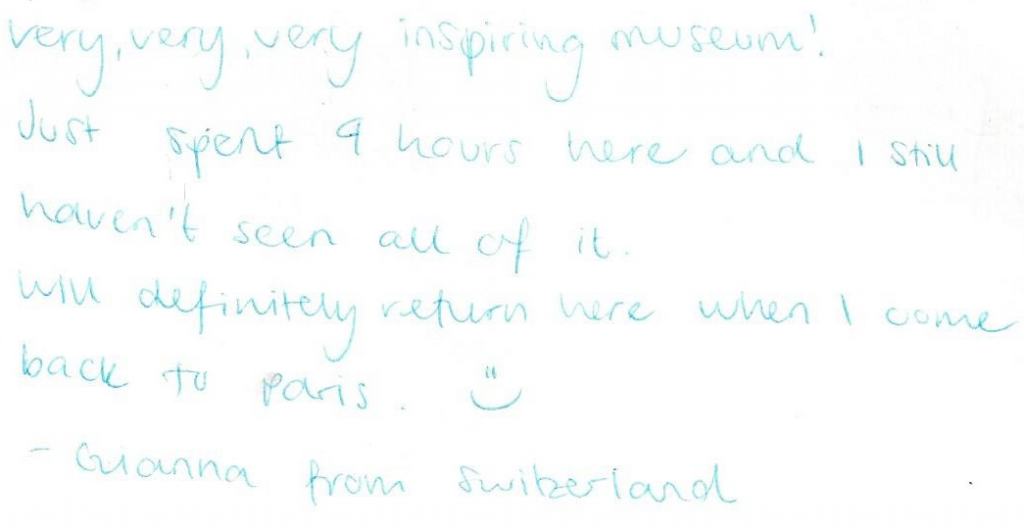 very, very, very inspiring museum!
Just spent 9 hours here and I still
haven't seen all of it.
Will definitely return here when I come
back to Paris. :)
- Gianna from Switzerland